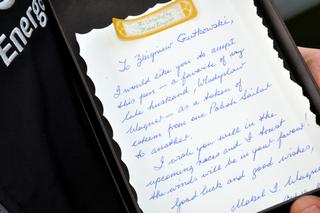 Energa
To Zbigniew Gutkowski,
I would like you to accept
this pen – a favorite of my
late husband, Wladyslaw
Wagner – as a token of
esteem from one Polish Sailor
to another.
I wish you well in the
upcoming races and I trust
the winds will be in your favour!
Good luck and good wishes,
Mabel I. Wagner